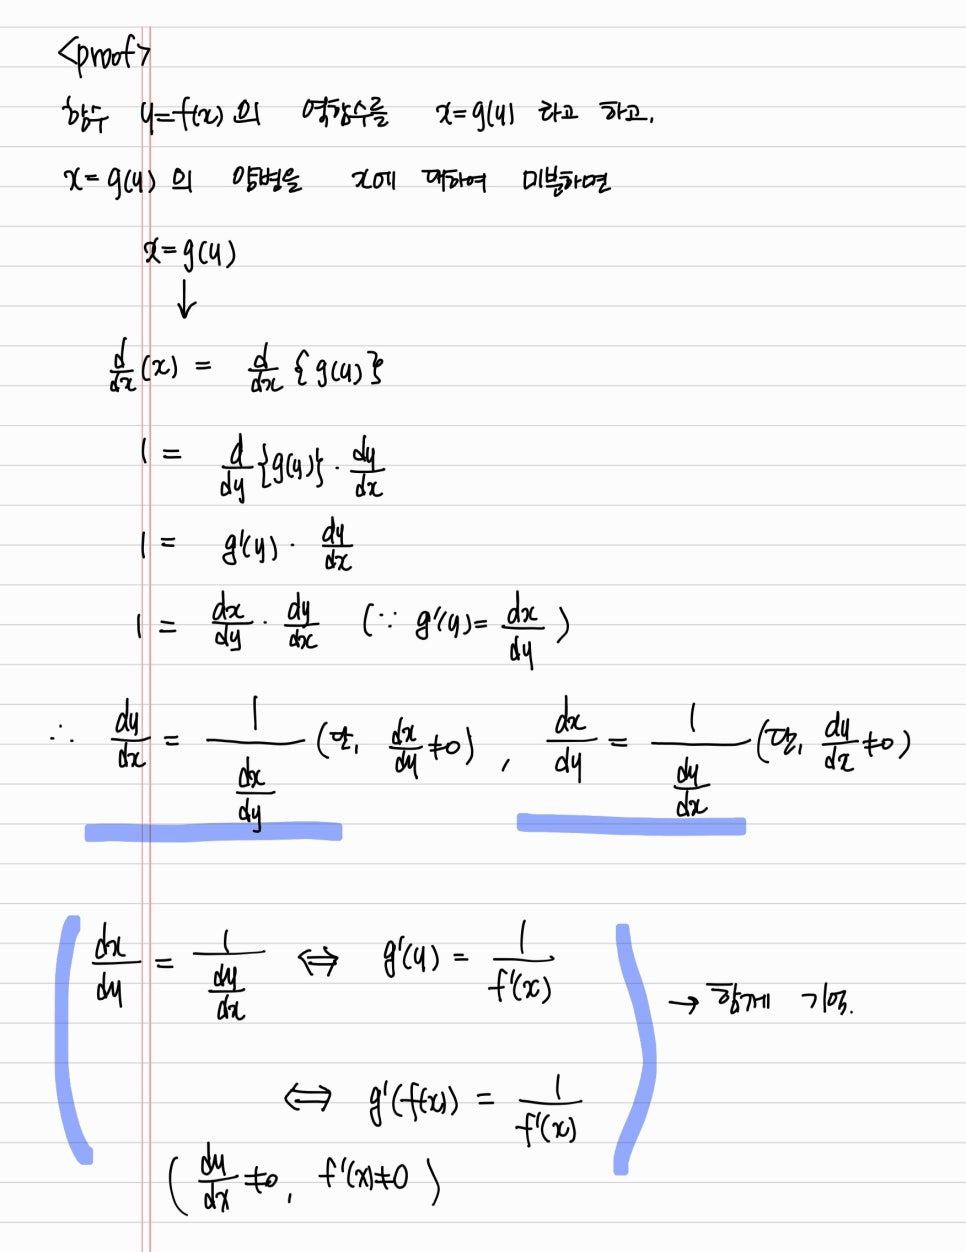 <proof>
함수 y=f(x) 의 역함수를 x=g(y) 라고 하고,
x=g(y) 의 양변을 x에 대하여 미분하면
x=g(y)
↓
d/dx (x) = d/dx {g(y)}
1 = d/dy {g(y)} · dy/dx
1 = g'(y) · dy/dx
1 = dx/dy · dy/dx (∵ g'(y)= dx/dy )
∴ dy/dx = 1/(dx/dy) (단, dx/dy ≠0) , dx/dy = 1/(dy/dx) (단, dy/dx ≠0)
( dx/dy = 1/(dy/dx) ⇔ g'(y) = 1/f'(x) ) → 함께 기억.
⇔ g'(f(x)) = 1/f'(x)
( dy/dx ≠0, f'(x)≠0 )